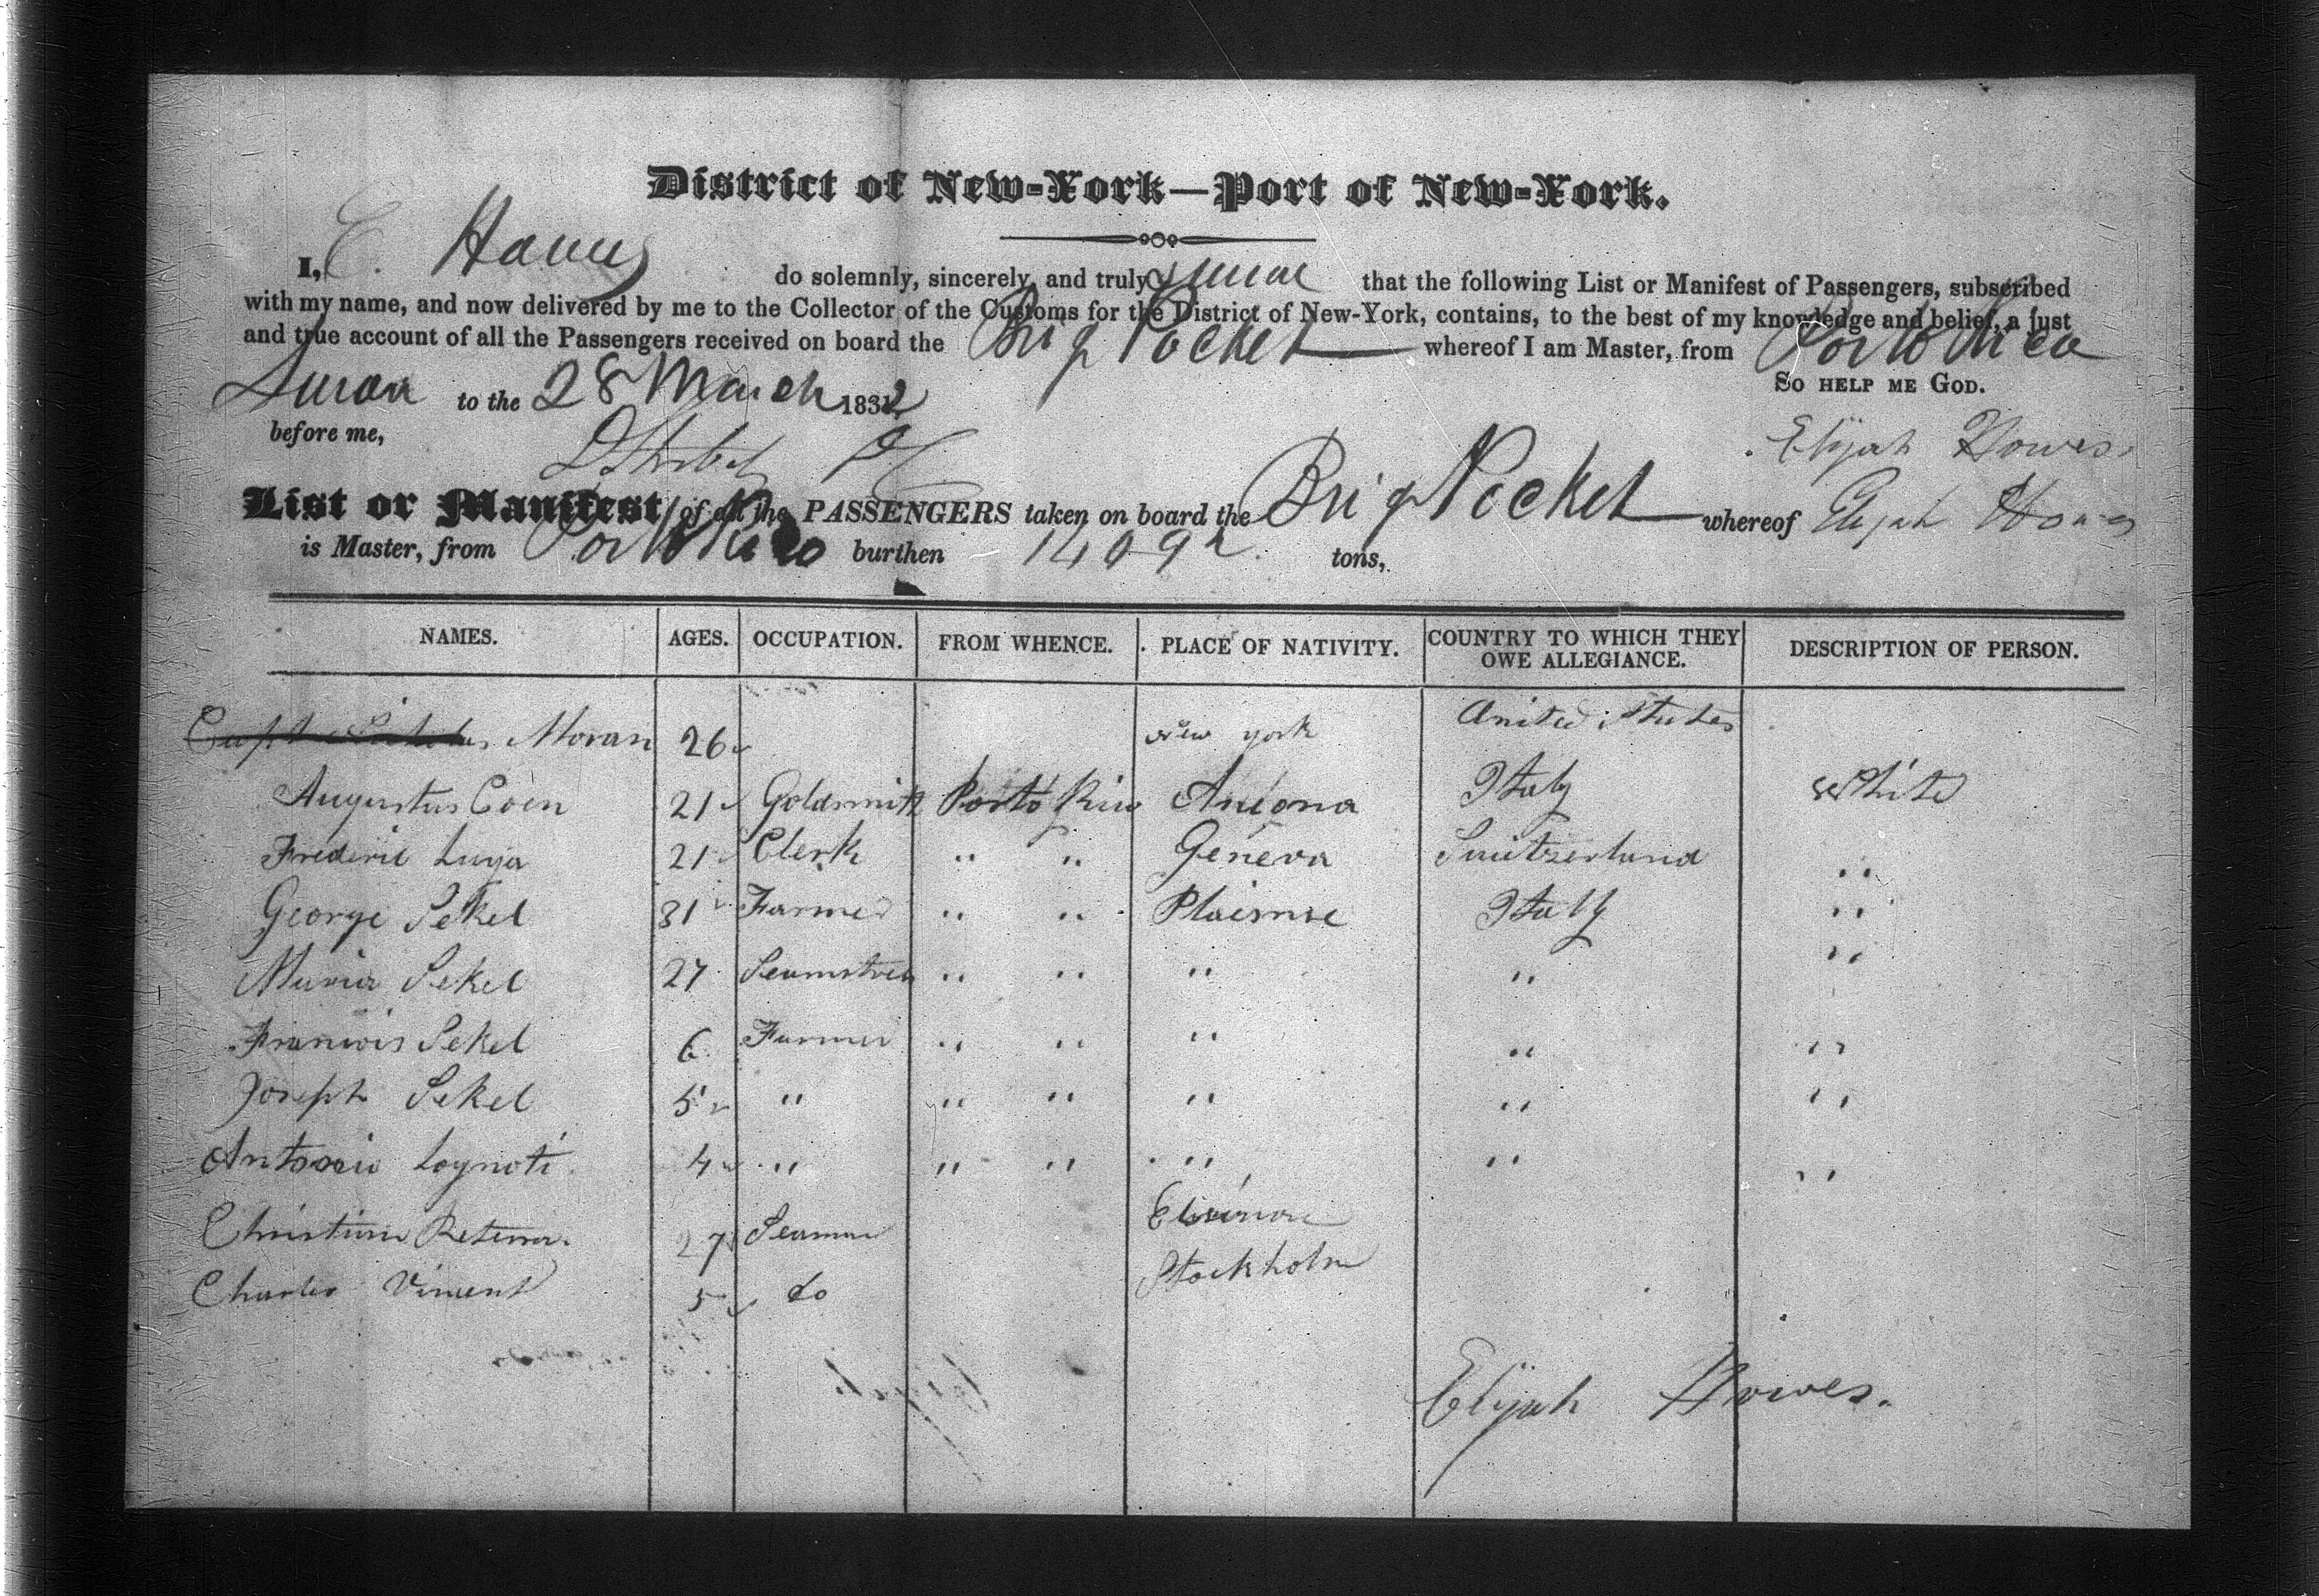 District of New-York—Port of New-York.
I, E. Howes do solemnly, sincerely, and truly swear that the following List or Manifest of Passengers, subscribed
with my name, and now delivered by me to the Collector of the Customs for the District of New-York, contains, to the best of my knowledge and belief, a just
and true account of all the Passengers received on board the Brig Pocket whereof I am Master, from Porto Rico
Sworn to the 28 March 1832 So help me God.
before me, Elijah Howes.
List or Manifest of all the PASSENGERS taken on board the Brig Pocket whereof Elijah Howes
is Master, from Porto Rico burthen tons,
NAMES. AGES. OCCUPATION. FROM WHENCE. PLACE OF NATIVITY. COUNTRY TO WHICH THEY OWE ALLEGIANCE. DESCRIPTION OF PERSON.
Moran 26 New york United States
Augustus Coen 21 Goldsmith Porto Rico Ancona Italy White
Frederic Luya 21 Clerk " " Geneva Suitzerland "
George Sekel 31 Farmer " " Italy "
Maria Sekel 27 Seamstress " " " " "
Francois Sekel 6 Farmer " " " " "
Joseph Sekel 5 " " " " " "
Antonio 4 " " " " " "
Christian 27 Seaman
Charles Vincent 5 do Stockholm
Elijah Howes.